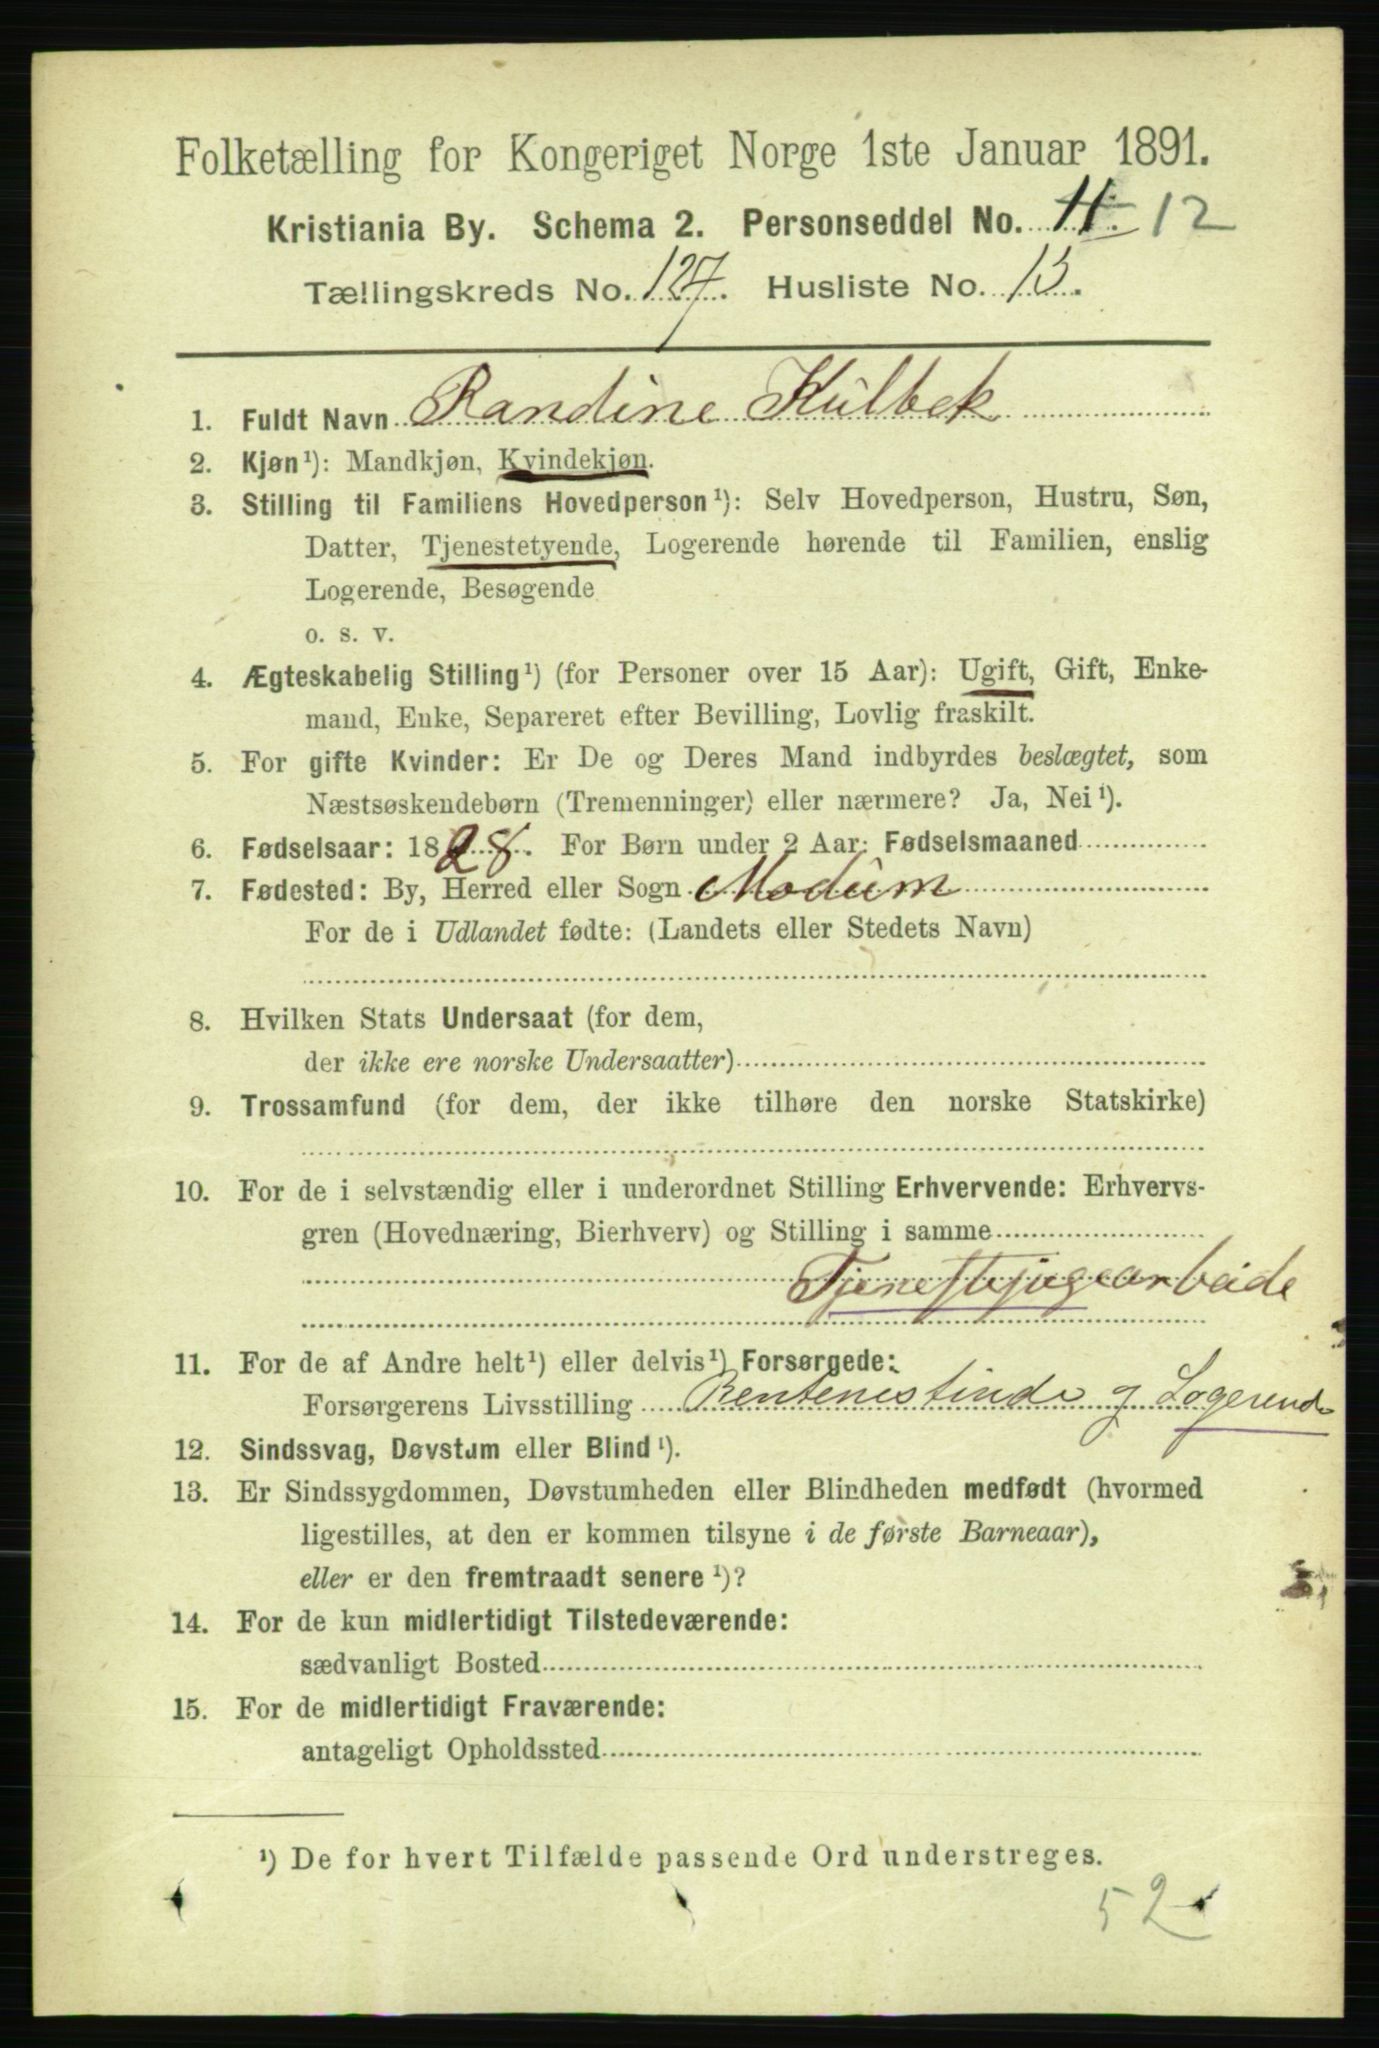 Folketælling for Kongeriget Norge 1ste Januar 1891.
Kristiania By. Schema 2. Personseddel No. 11. 12
Tællingskreds No. 127. Husliste No. 13.
1. Fuldt Navn Randine Kulbek
2. Kjøn¹): Mandkjøn, Kvindekjøn.
3. Stilling til Familiens Hovedperson¹): Selv Hovedperson, Hustru, Søn,
Datter, Tjenestetyende, Logerende hørende til Familien, enslig
Logerende, Besøgende
o. s. v.
4. Ægteskabelig Stilling¹) (for Personer over 15 Aar): Ugift, Gift, Enke-
mand, Enke, Separeret efter Bevilling, Lovlig fraskilt.
5. For gifte Kvinder: Er De og Deres Mand indbyrdes beslægtet, som
Næstsøskendebørn (Tremenninger) eller nærmere? Ja, Nei¹).
6. Fødselsaar: 1828. For Børn under 2 Aar: Fødselsmaaned
7. Fødested: By, Herred eller Sogn Modum
For de i Udlandet fødte: (Landets eller Stedets Navn)
8. Hvilken Stats Undersaat (for dem,
der ikke ere norske Undersaatter)
9. Trossamfund (for dem, der ikke tilhøre den norske Statskirke)
10. For de i selvstændig eller i underordnet Stilling Erhvervende: Erhvervs-
gren (Hovednæring, Bierhverv) og Stilling i samme
Tjenestejugearbeide
11. For de af Andre helt¹) eller delvis¹) Forsørgede:
Forsørgerens Livsstilling Rentenestinde g Logerende
12. Sindssvag, Døvstum eller Blind¹).
13. Er Sindssygdommen, Døvstumheden eller Blindheden medfødt (hvormed
ligestilles, at den er kommen tilsyne i de første Barneaar),
eller er den fremtraadt senere¹)?
14. For de kun midlertidigt Tilstedeværende:
sædvanligt Bosted
15. For de midlertidigt Fraværende:
antageligt Opholdssted
¹) De for hvert Tilfælde passende Ord understreges.
52